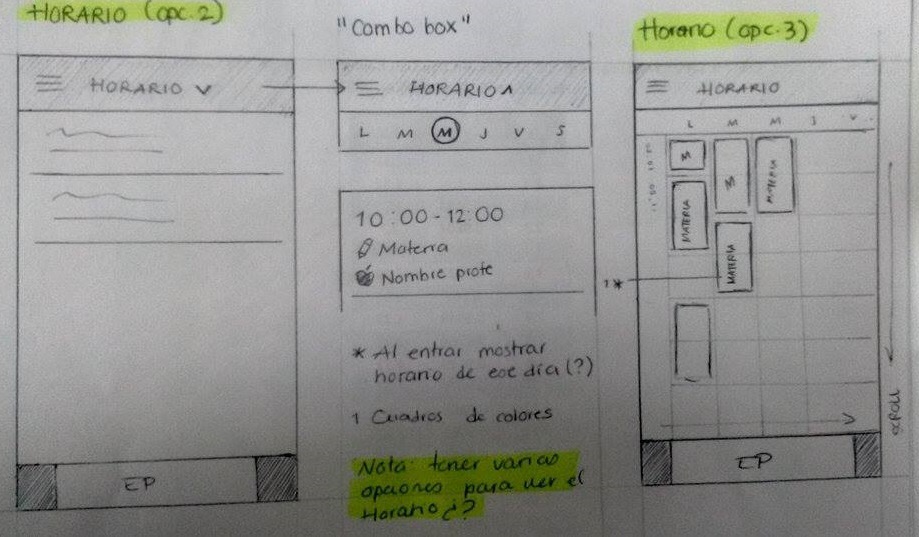 HORARIO (opc. 2)
HORARIO V
EP
"Combo box"
HORARIO ^
L M M J V S
10:00-12:00
Materia
Nombre profe
* Al entrar mostrar
horario de ese día (?)
1 Cuadros de colores
Nota: tener varias
opciones para ver el
Horario ¿?
Horario (opc. 3)
HORARIO
L M M J V
M
MATERIA
M
MATERIA
MATERIA
1*
SCROLL
EP